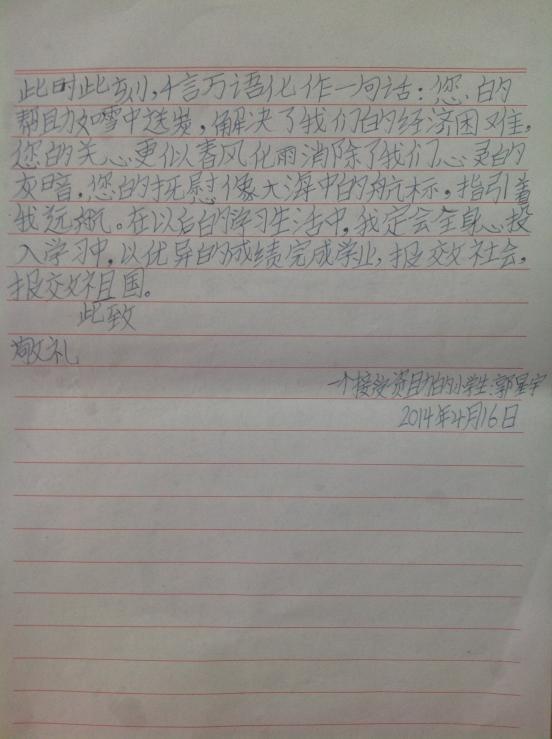 此时此刻,千言万语化作一句话:您的
帮助如雪中送炭,解决了我们的经济困难,
您的关心更似春风化雨消除了我们心灵的
灰暗,您的抚慰像大海中的航标,指引着
我远航。在以后的学习生活中,我定会全身心投
入学习中,以优异的成绩完成学业,报效社会,
报效祖国。
此致
敬礼
一个接受资助的小学生:郭星宇
2014年4月16日